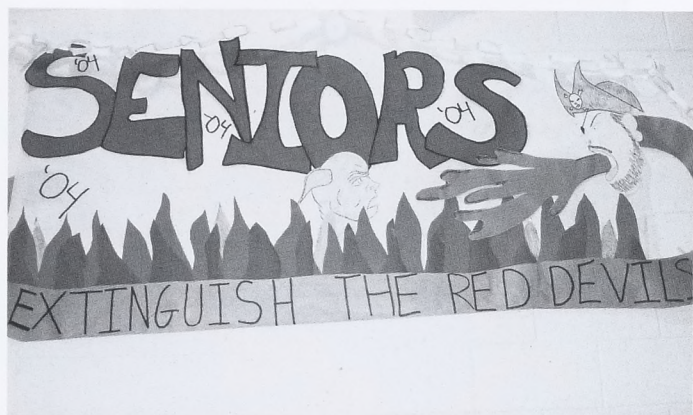 SENIORS
'04
'04
'04
'04
EXTINGUISH THE RED DEVILS